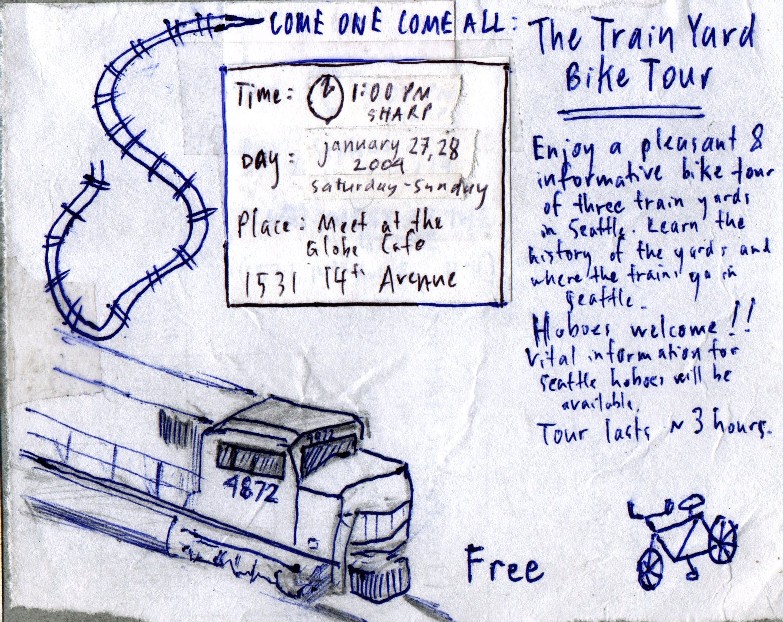 COME ONE COME ALL:
The Train Yard
Bike Tour
Time: 1:00 PM
SHARP
Day: january 27, 28
2004
saturday-sunday
Place: Meet at the
Globe Cafe
1531 14th Avenue
Enjoy a pleasant &
informative bike tour
of three train yards
in Seattle. Learn the
history of the yards and
where the trains go in
Seattle.
Hoboes welcome!!
Vital information for
Seattle hoboes will be
available.
Tour lasts ~ 3 hours.
4872
4872
Free